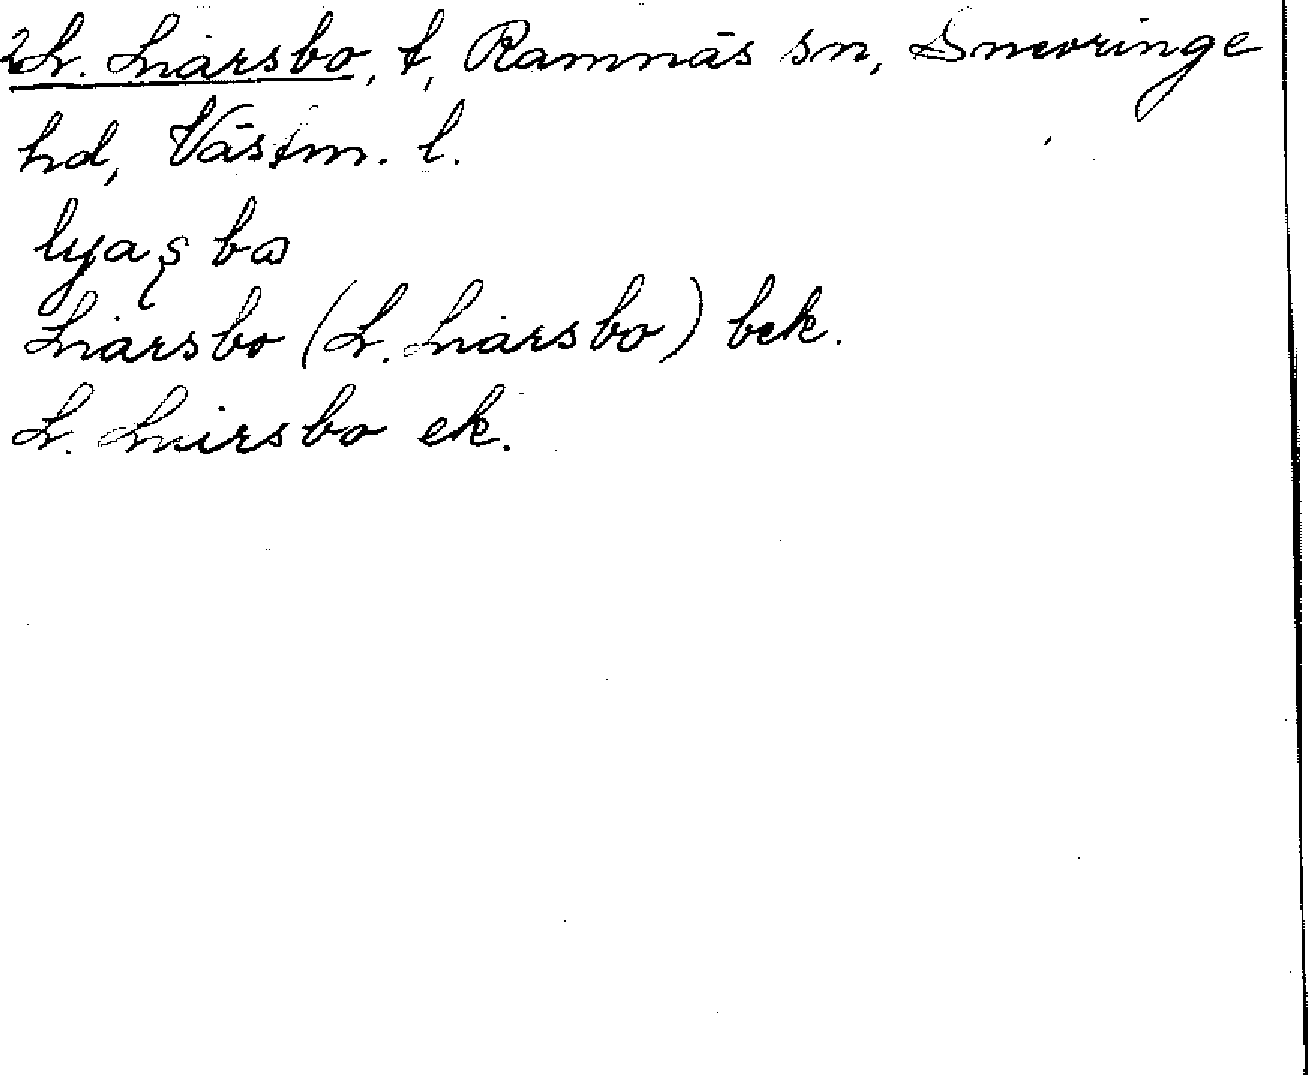 L. Liarsbo, t, Ramnäs sn, Snevringe
hd, Västm. l.
lyaʂ bɷ
Liarsbo (L. Liarsbo) bek.
L. Liarsbo ek.